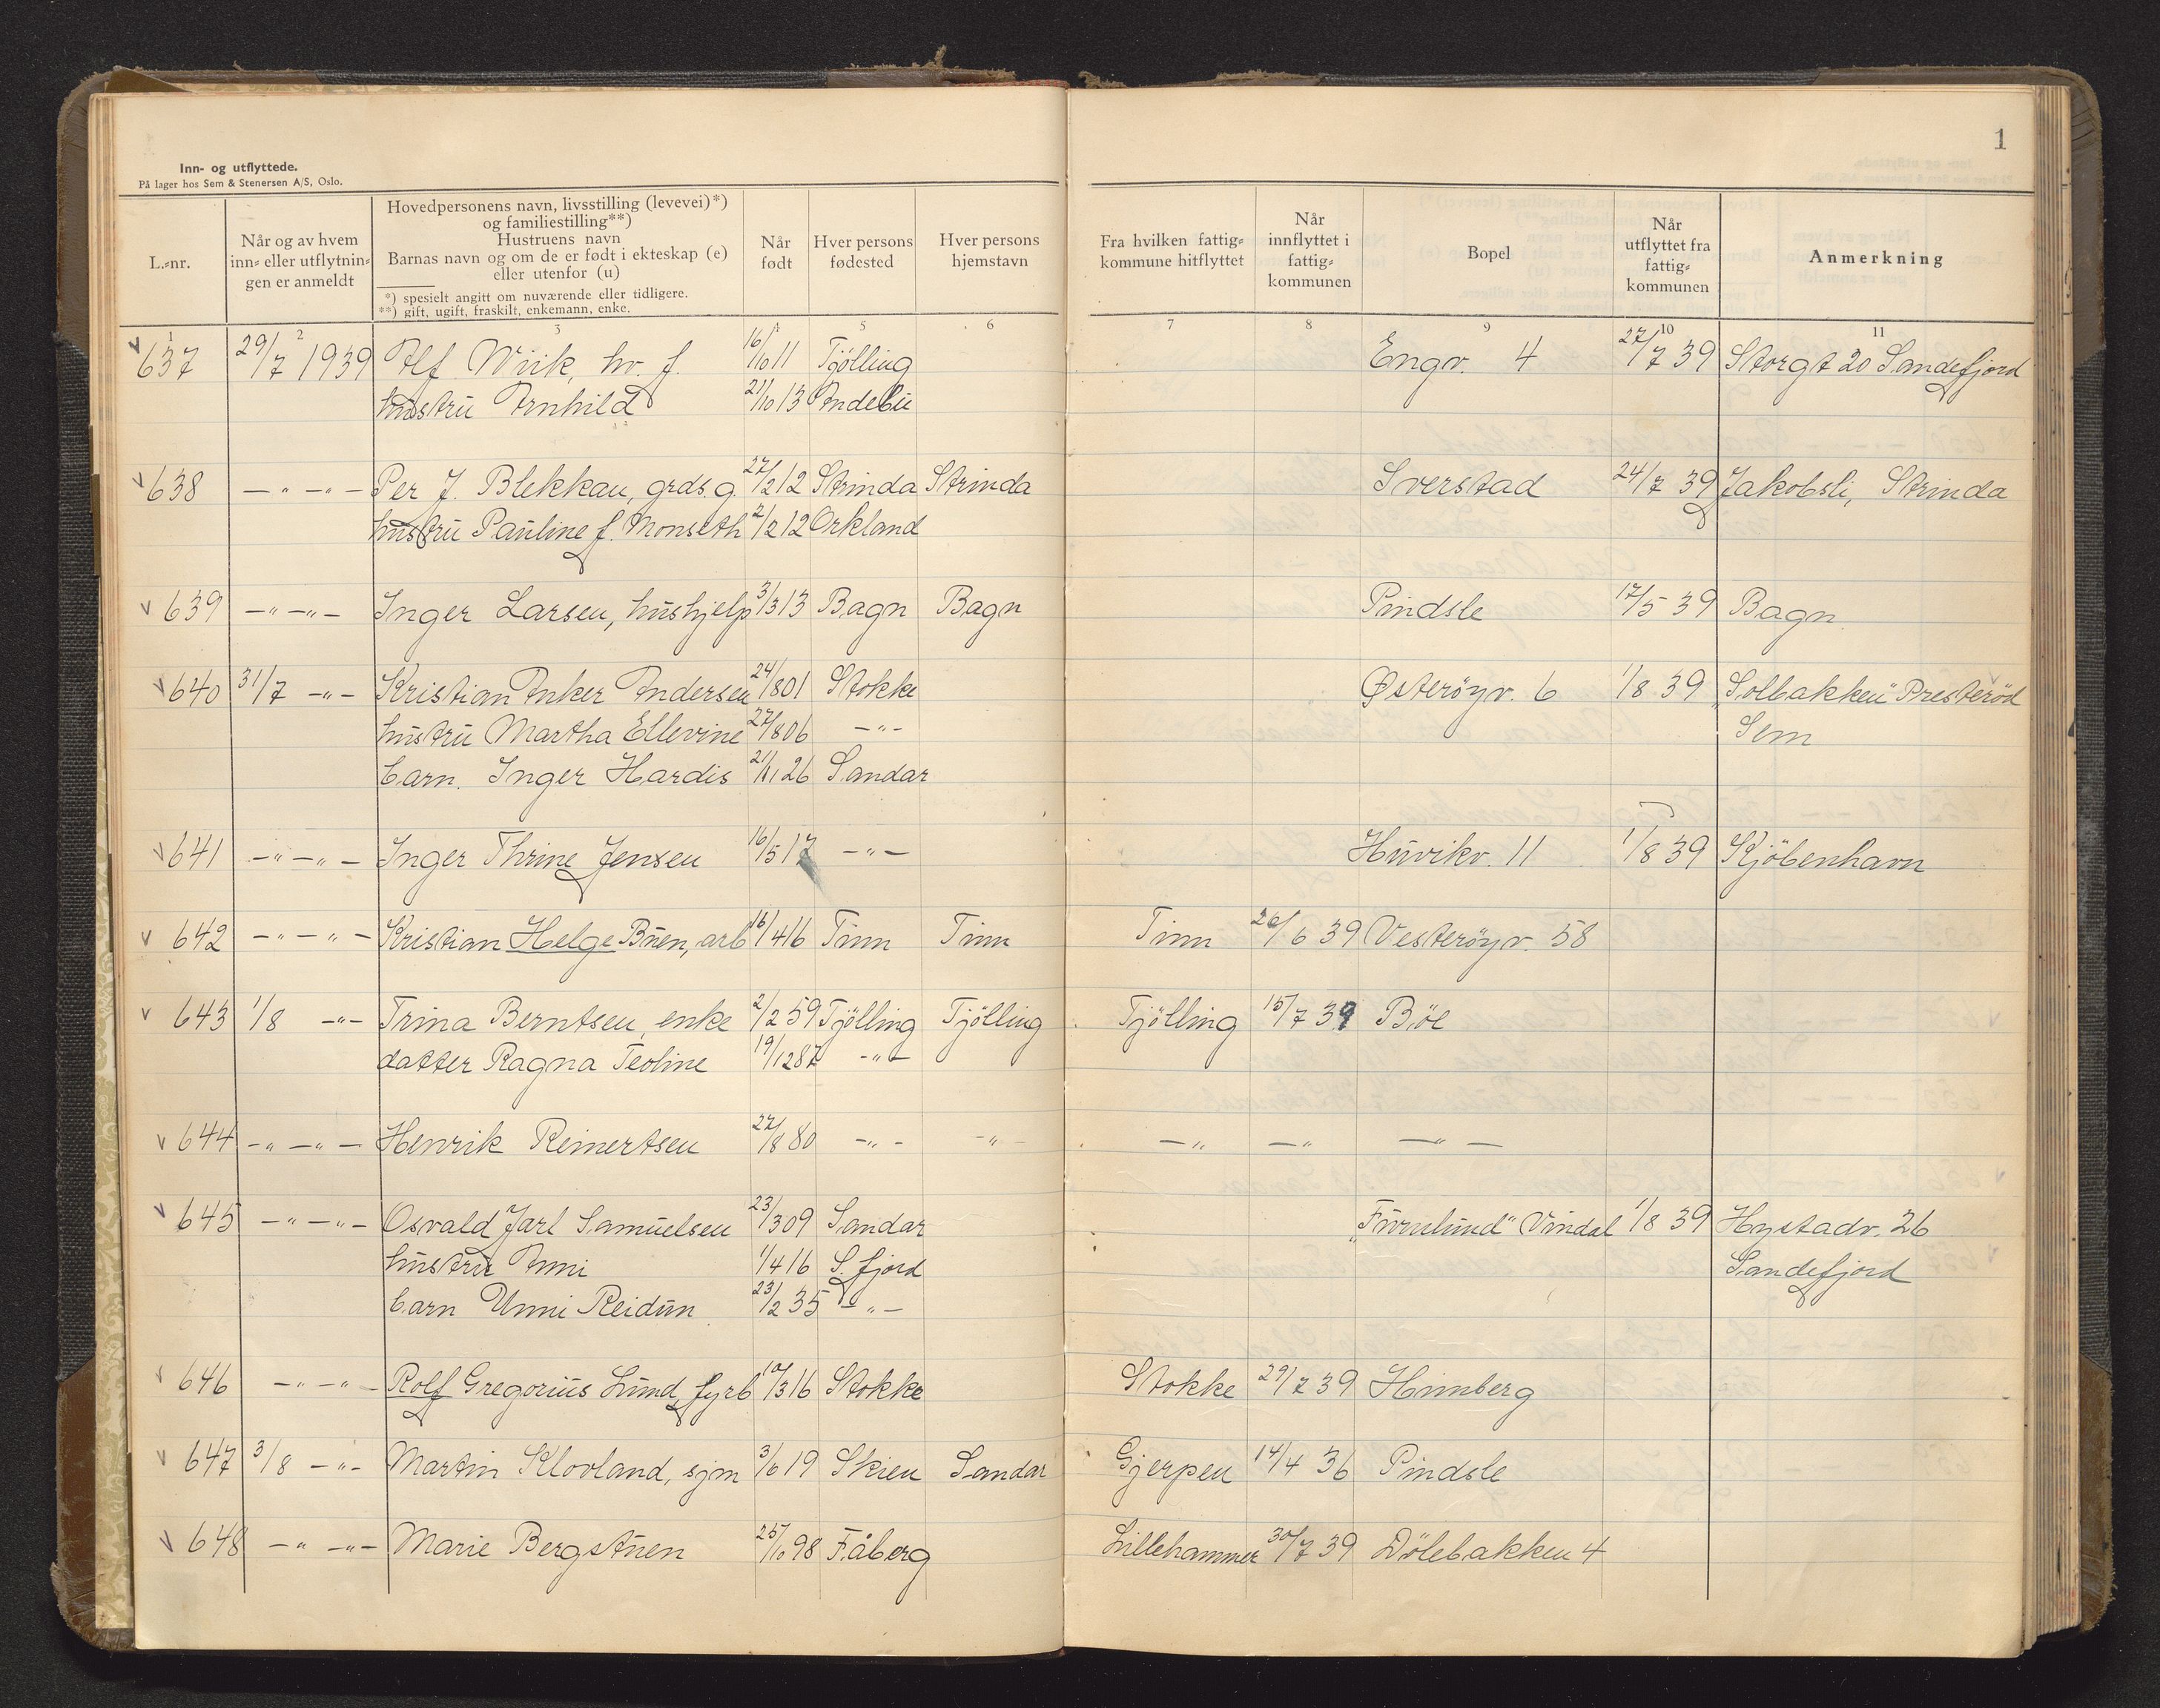 1
Inn- og utflyttede.
På lager hos Sem & Stenersen A/S, Oslo.
L.-nr.
Når og av hvem inn- eller utflytnin- gen er anmeldt
Hovedpersonens navn, livsstilling (levevei)*) og familiestilling**)
Hustruens navn
Barnas navn og om de er født i ekteskap (e) eller utenfor (u)
*) spesielt angitt om nuværende eller tidligere.
**) gift, ugift, fraskilt, enkemann, enke.
Når født
Hver persons fødested
Hver persons hjemstavn
Fra hvilken fattig- kommune hitflyttet
Når innflyttet i fattig- kommunen
Bopel
Når utflyttet fra fattig- kommunen
Anmerkning
1 2 3 4 5 6 7 8 9 10 11
v 637 29/7 1939 Alf Wiik, hv. f. 16/10 11 Tjölling Engv. 4 27/7 39 Storgt 20 Sandefjord
hustru Arnhild 21/10 13 Andebu
v 638 -"-"- Per J. Blekkan, grds.g. 27/2 12 Strinda Strinda Sverstad 24/7 39 Jakobsli, Strinda
hustru Pauline f. Monseth 2/2 12 Orkland
v 639 -"-"- Inger Larsen, hushjelp 3/3 13 Bagn Bagn Pindsle 17/5 39 Bagn
v 640 31/7 -"- Kristian Anker Andersen 24/8 01 Stokke Østeröyv. 6 1/8 39 "Solbakken" Presteröd
hustru Martha Ellevine 27/8 06 -"- Sem
barn. Inger Hardis 21/11 26 Sandar
v 641 -"-"- Inger Thrine Jensen 16/5 17 -"- Huvikv. 11 1/8 39 Kjöbenhavn
v 642 -"-"- Kristian Helge Buen, arb 16/4 16 Tinn Tinn Tinn 26/6 39 Vesteröyv. 58
v 643 1/8 -"- Trina Berntsen, enke 2/2 59 Tjölling Tjölling Tjölling 15/7 39 Böe
datter Ragna Teoline 19/12 87 -"-
v 644 -"-"- Henrik Reinertsen 27/8 80 -"- -"- -"- -"- -"-
v 645 -"-"- Osvald Jarl Samuelsen 23/3 09 Sandar "Furulund" Vindal 1/8 39 Hystadv. 26
hustru Anni 1/4 16 S.fjord Sandefjord
barn Unni Reidun 23/2 35 -"-
v 646 -"-"- Rolf Gregorius Lund, fyrb 10/3 16 Stokke Stokke 29/7 39 Himberg
v 647 3/8 -"- Martin Klovland, sjm 3/6 19 Skien Sandar Gjerpen 14/4 36 Pindsle
v 648 -"-"- Marie Bergstuen 25/10 98 Fåberg Lillehammer 30/7 39 Dölebakken 4